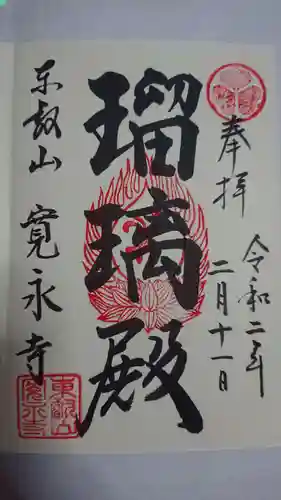 奉拝
令和二年
二月十一日
瑠璃殿
東叡山 寛永寺
東叡山
寛永寺